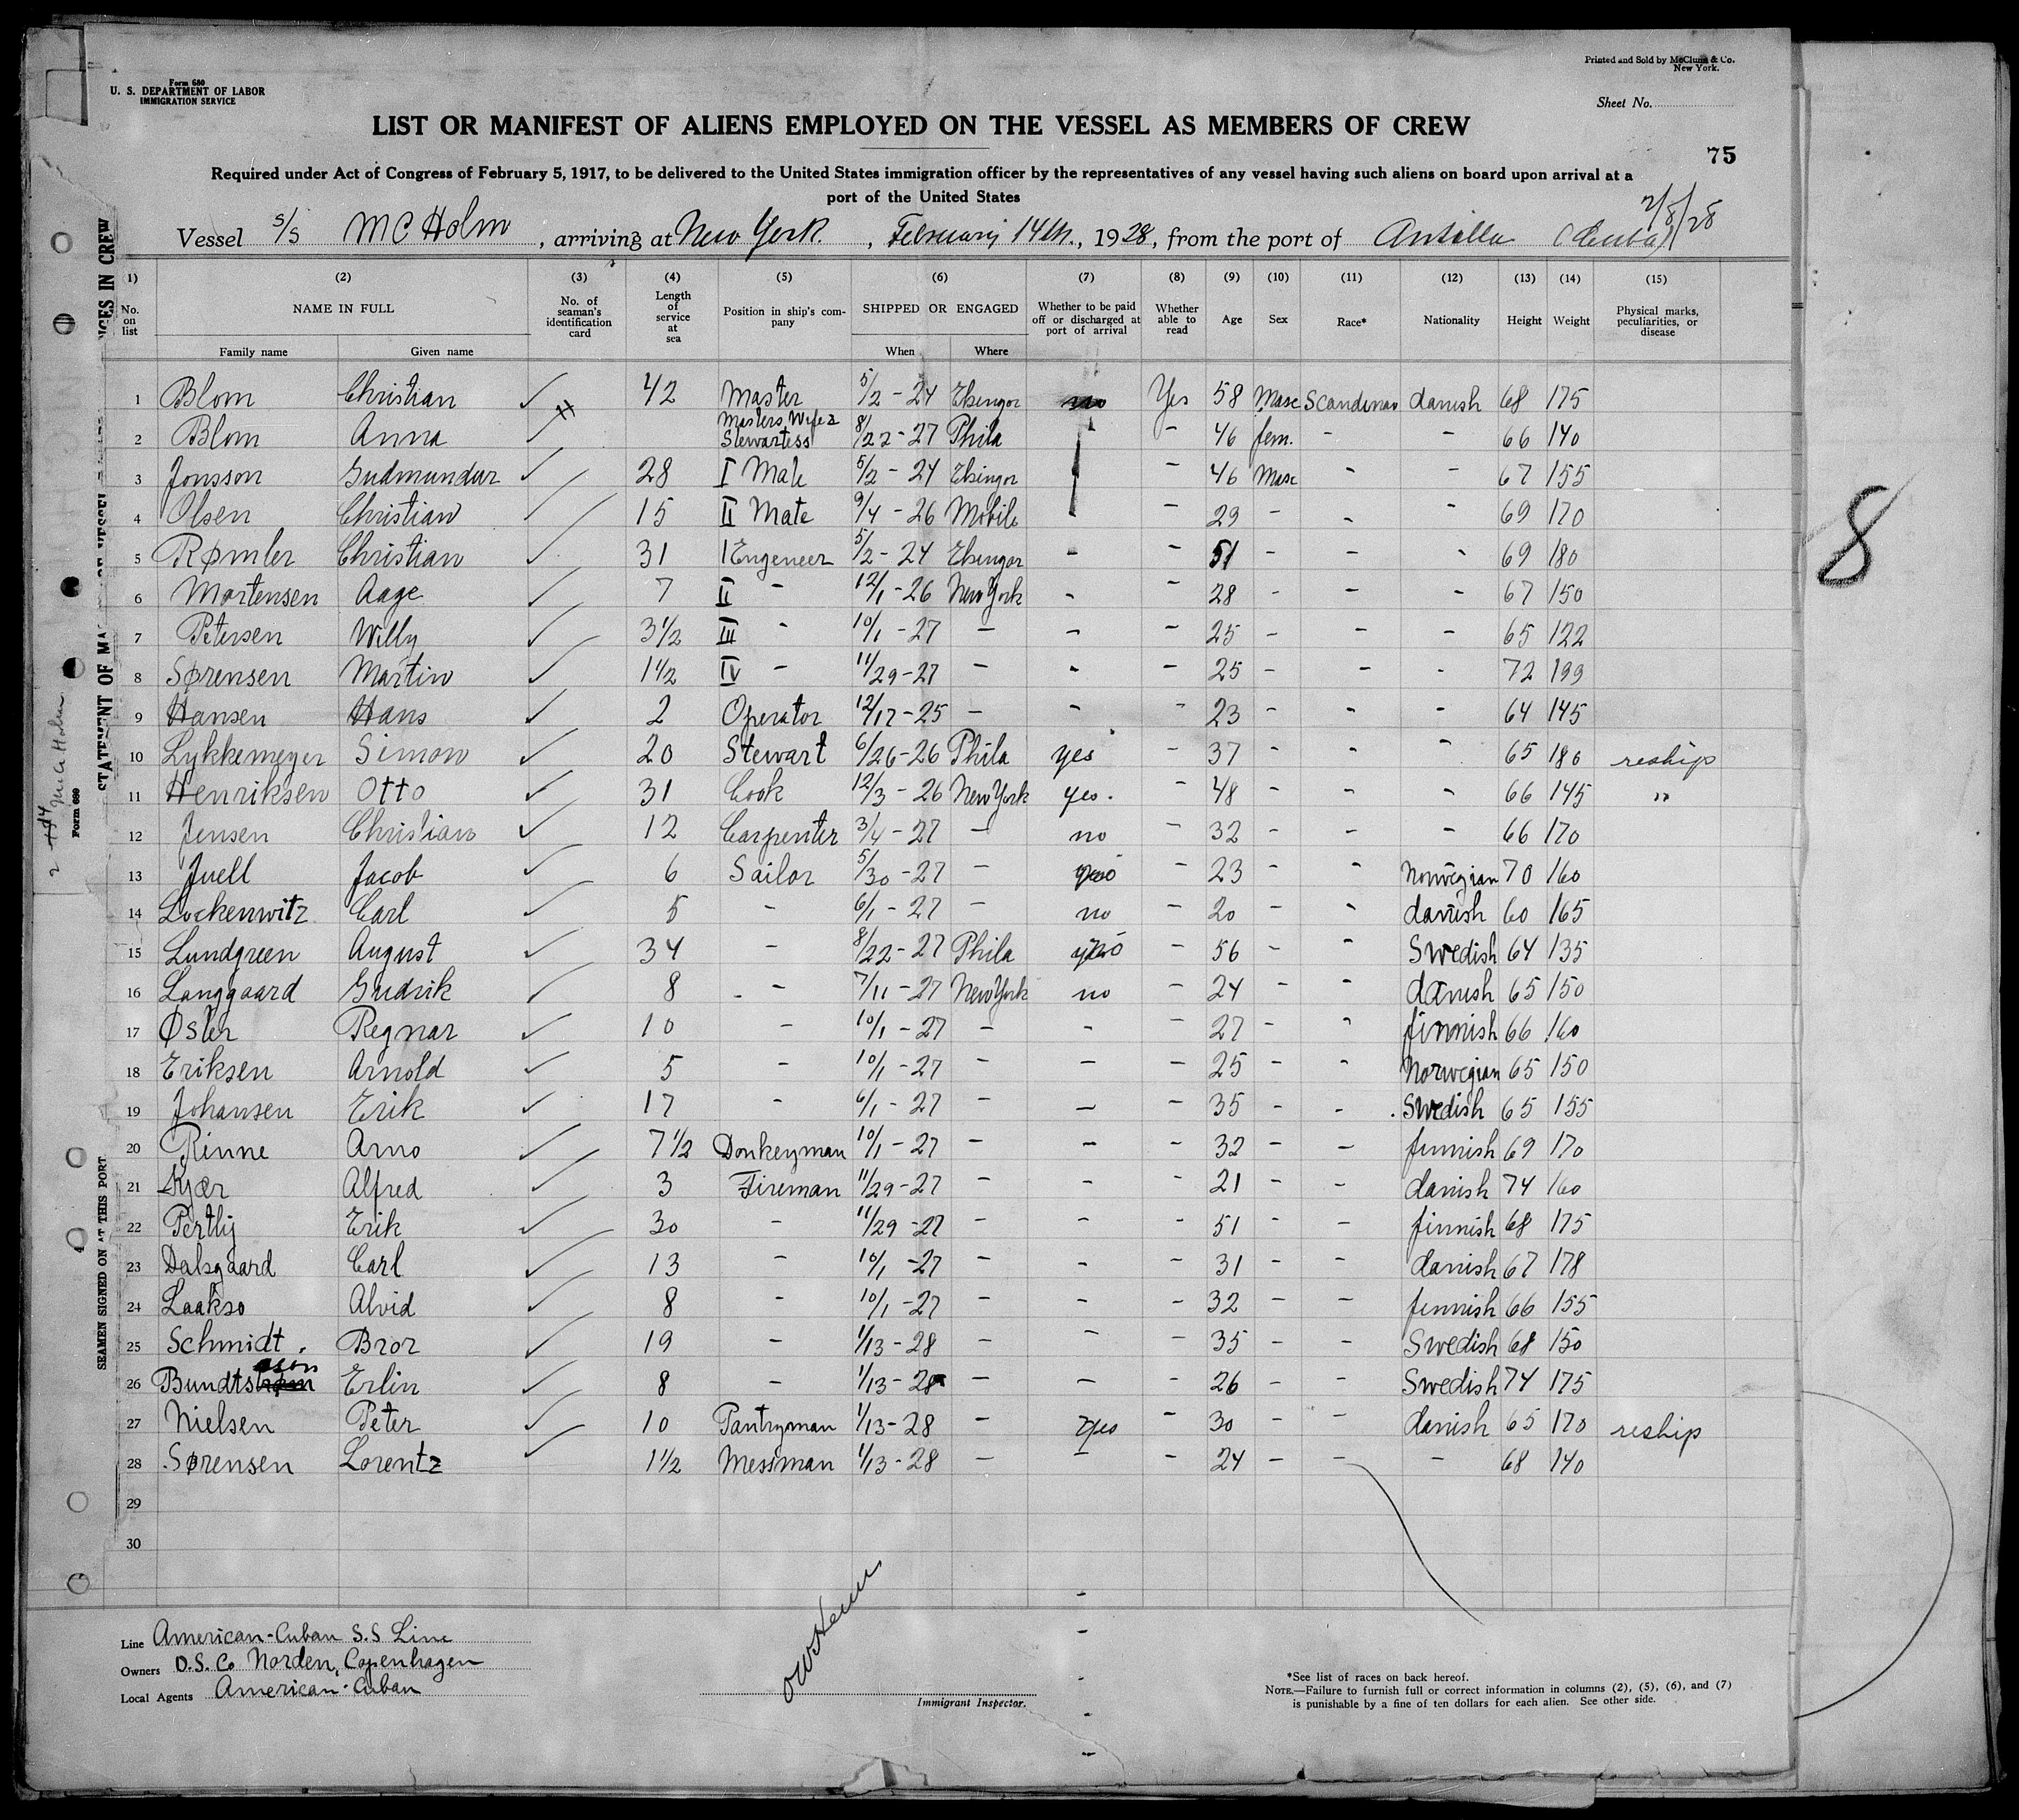 Form 680
U. S. DEPARTMENT OF LABOR
IMMIGRATION SERVICE
Printed and Sold by McClung & Co.
New York.
Sheet No.
LIST OR MANIFEST OF ALIENS EMPLOYED ON THE VESSEL AS MEMBERS OF CREW
75
Required under Act of Congress of February 5, 1917, to be delivered to the United States immigration officer by the representatives of any vessel having such aliens on board upon arrival at a
port of the United States
2/8/28
Vessel S/S MC Holm, arriving at New York., February 14th., 1928, from the port of Antilla (Cuba)
1) (2) (3) (4) (5) (6) (7) (8) (9) (10) (11) (12) (13) (14) (15)
No. on list NAME IN FULL No. of seaman's identification card Length of service at sea Position in ship's company SHIPPED OR ENGAGED Whether to be paid off or discharged at port of arrival Whether able to read Age Sex Race* Nationality Height Weight Physical marks, peculiarities, or disease
Family name Given name When Where
1 Blom Christian ✓ 42 Master 5/2 - 24 Elsingor no Yes 58 Masc Scandinav danish 68 175
2 Blom Anna ✓ Masters Wife & Stewartess 8/22 - 27 Phila - 46 fem. - - 66 140
3 Jonsson Gudmundur ✓ 28 I Mate 5/2 - 24 Elsingor - 46 Masc - - 67 155
4 Olsen Christian ✓ 15 II Mate 9/4 - 26 Mobile - 29 - - - 69 170
5 Rømler Christian ✓ 31 I Engeneer 5/2 - 24 Elsingor - - 51 - - - 69 180
6 Mortensen Aage ✓ 7 II - 12/1 - 26 New York - - 28 - - - 67 150
7 Petersen Willy ✓ 3 1/2 III - 10/1 - 27 - - - 25 - - - 65 122
8 Sørensen Martin ✓ 1 1/2 IV - 11/29 - 27 - - - 25 - - - 72 199
9 Hansen Hans ✓ 2 Operator 12/17 - 25 - - - 23 - - - 64 145
10 Lykkemeyer Simon ✓ 20 Stewart 6/26 - 26 Phila yes - 37 - - - 65 180 reship
11 Henriksen Otto ✓ 31 Cook 12/3 - 26 New York yes. - 48 - - - 66 145 "
12 Jensen Christian ✓ 12 Carpenter 3/4 - 27 - no - 32 - - - 66 170
13 Juell Jacob ✓ 6 Sailor 5/30 - 27 - - 23 - - Norwegian 70 160
14 Lockenwitz Carl ✓ 5 - 6/1 - 27 - no - 20 - - danish 60 165
15 Lundgreen August ✓ 34 - 8/22 - 27 Phila - 56 - - Swedish 64 135
16 Langgaard Gudrik ✓ 8 - 7/11 - 27 New York no - 24 - - danish 65 150
17 Øster Regnar ✓ 10 - 10/1 - 27 - - - 27 - - finnish 66 160
18 Eriksen Arnold ✓ 5 - 10/1 - 27 - - - 25 - - Norwegian 65 150
19 Johansen Erik ✓ 17 - 6/1 - 27 - - - 35 - - Swedish 65 155
20 Rinne Arno ✓ 7 1/2 Donkeyman 10/1 - 27 - - - 32 - - finnish 69 170
21 Kjær Alfred ✓ 3 Fireman 11/29 - 27 - - - 21 - - danish 74 160
22 Pertlij Erik ✓ 30 - 11/29 - 27 - - - 51 - - finnish 68 175
23 Dalsgaard Carl ✓ 13 - 10/1 - 27 - - - 31 - - danish 67 178
24 Laakso Alvid ✓ 8 - 10/1 - 27 - - - 32 - - finnish 66 155
25 Schmidt Bror ✓ 19 - 1/13 - 28 - - - 35 - - Swedish 68 150
26 Bundts Erlin ✓ 8 - 1/13 - 28 - - - 26 - - Swedish 74 175
27 Nielsen Peter ✓ 10 Pantryman 1/13 - 28 - yes - 30 - - danish 65 170 reship
28 Sørensen Lorentz ✓ 1 1/2 Messman 1/13 - 28 - - - 24 - - - 68 140
29
30
Line American-Cuban S.S Line
Owners D.S. Co Norden, Copenhagen
Local Agents American-Cuban
Immigrant Inspector.
*See list of races on back hereof.
NOTE.—Failure to furnish full or correct information in columns (2), (5), (6), and (7)
is punishable by a fine of ten dollars for each alien. See other side.
8
Form 680
SEAMEN SIGNED ON AT THIS PORT
STATEMENT OF
IN CREW